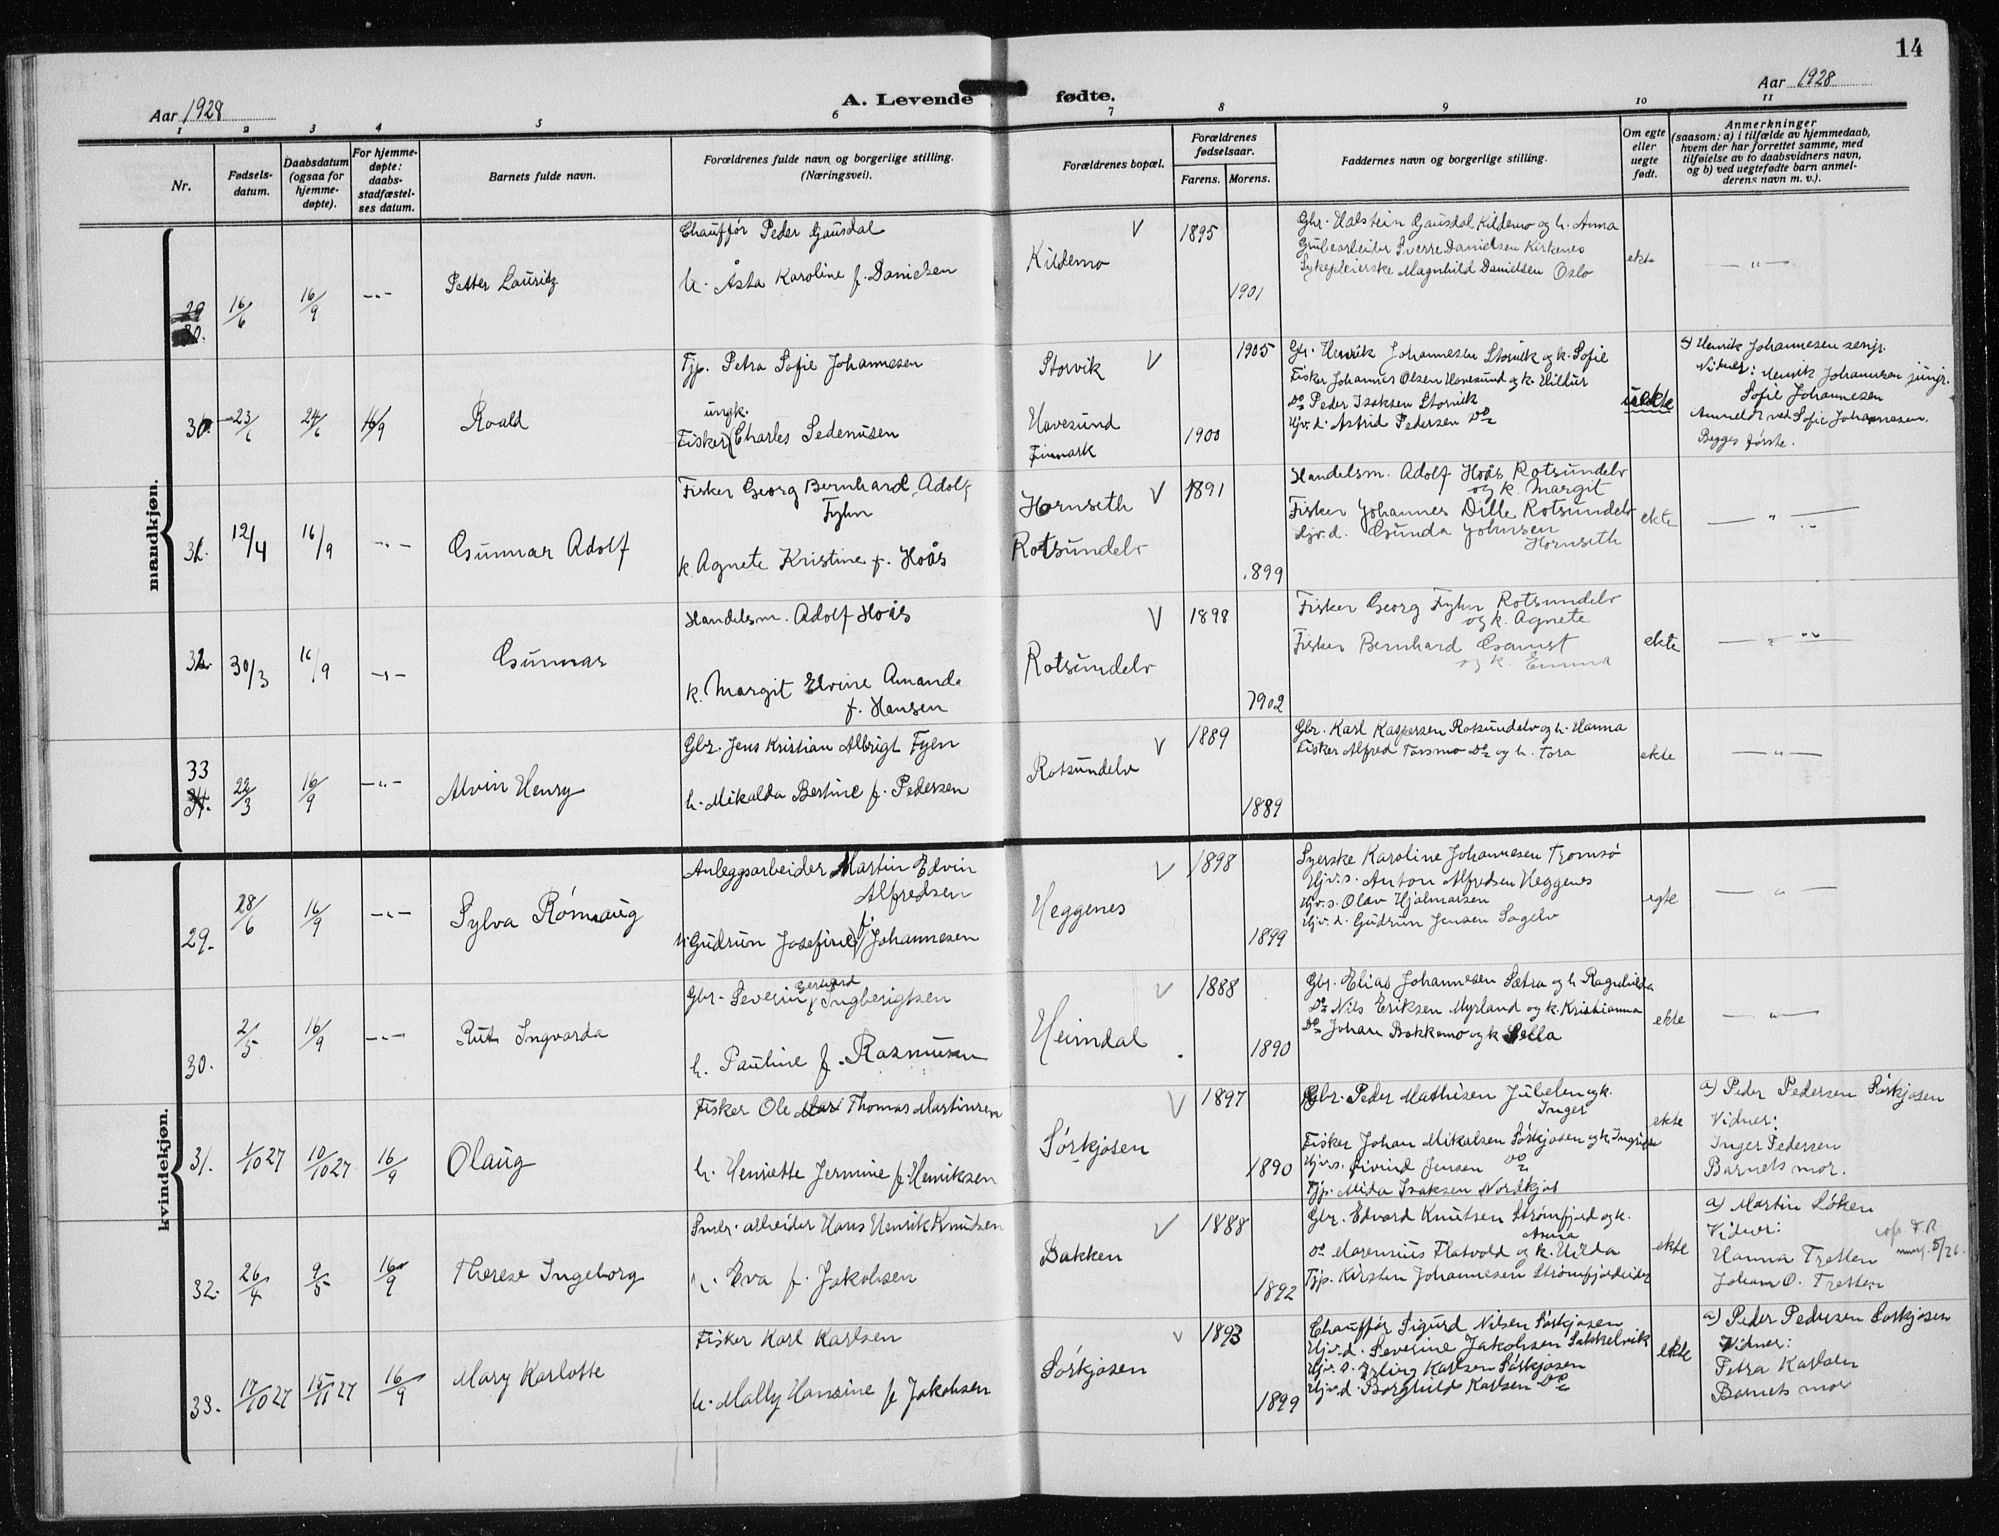 14
Aar 1928
A. Levende fødte.
Aar 1928
1 2 3 4 5 6 7 8 9 10 11
Nr.
Fødsels-
datum.
Daabsdatum
(ogsaa for
hjemme-
døpte).
For hjemme-
døpte:
daabs-
stadfæstel-
ses datum.
Barnets fulde navn.
Forældrenes fulde navn og borgerlige stilling.
(Næringsvei).
Forældrenes bopæl.
Forældrenes
fødselsaar.
Farens. Morens.
Faddernes navn og borgerlige stilling.
Om egte
eller
uegte
født.
Anmerkninger
(saasom: a) i tilfælde av hjemmedaab,
hvem der har forrettet samme, med
tilføielse av to daabsvidners navn,
og b) ved uegtefødte barn anmel-
derens navn m. v.).
mandkjøn.
29
30.
16/6
16/9
-"-
Petter Lauritz
Chauffør Peder Gausdal
h. Åsta Karoline f. Danielsen
Kildemo
V
1895
1901
Gbr. Halstein Gausdal Kildemo og h. Anna
Grubearbeider Sverre Danielsen Kirkenes
Sykepleierske Magnhild Danielsen Oslo
ekte
-"-
30.
23/6
24/6
16/9
Roald
Tjp. Petra Sofie Johannesen
ungk.
Fisker Charles Sedenusen
Storvik
V
Havesund
Finmark
1905
1900
Gbr. Henrik Johannesen Storvik og k. Sofie
Fisker Johannes Olsen Havesund og k. Hildur
Do Peder Isaksen Storvik
Hjv. d. Astrid Pedersen Do
uekte
a) Henrik Johannesen senjr.
Vidner: Henrik Johannesen junjr.
Sofie Johannesen
Anmeldt ved Sofie Johannesen.
Begges første.
31.
12/4
16/9
-"-
Gunnar Adolf
Fisker Georg Bernhard Adolf
Fyhn
k. Agnete Kristine f. Hoås
Hornseth
V
Rotsundelv
1891
1899
Handelsm. Adolf Hoås Rotsundelv
og k. Margit
Fisker Johannes Dille Rotsundelv
Hjv. d. Gunda Johnsen
Hornseth
ekte
-"-
32.
30/3
16/9
-"-
Gunnar
Handelsm. Adolf Hoås
k. Margit Elvine Amanda
f. Hansen
V
Rotsundelv
1898
1902
Fisker Georg Fyhn Rotsundelv
og k. Agnete
Fisker Bernhard Gamst
og k. Emma
ekte
-"-
33
34.
22/3
16/9
-"-
Alvin Henry
Gbr. Jens Kristian Albrigt Fyen
h. Mikalda Bertine f. Pedersen
V
Rotsundelv
1889
1889
Gbr. Karl Kaspersen Rotsundelv og h. Hanna
Fisker Alfred Torsmo Do og h. Tora
ekte
-"-
kvindekjøn.
29.
28/6
16/9
-"-
Sylva Rómaug
Anleggsarbeider Martin Elvin
Alfredsen
h. Gudrun Josefine f. Johannesen
V
Heggenes
1898
1899
Syerske Karoline Johannesen Tromsø
Hjv. s. Anton Alfredsen Heggenes
Hjv. s. Olav Hjalmarsen
Hjv. d. Gudrun Jensen Sagelv
egte
-"-
30.
2/5
16/9
-"-
Rut Ingvarda
Gbr. Severin Gerhard Ingberigtsen
h. Pauline f. Rasmusen
V
Heimdal
1888
1890
Gbr. Elias Johannesen Sætra og h. Ragnhilda
Do Nils Eriksen Myrland og k. Kristianna
Do Johan Bakkemo og k. Sella
ekte
-"-
31.
1/10 27
10/10 27
16/9
Olaug
Fisker Ole Thomas Martinsen
h. Henriette Jermine f. Henriksen
V
Sørkjosen
1897
1890
Gbr. Peder Mathisen Jubelen og k.
Inger
Fisker Johan Mikalsen Sørkjosen og k. Ingrid
Hjv. s. Eivind Jensen Do
Tjp. Alida Isaksen Nordkjos
ekte
a) Peder Pedersen Sørkjosen
Vidner:
Inger Pedersen
Barnets mor.
32.
26/4
9/5
16/9
Therese Ingeborg
Smbr. arbeider Hans Henrik Knudsen
h. Eva f. Jakobsen
V
Bakken
1888
1892
Gbr. Edvard Knutsen Strømfjord og k.
Anna
Do Marensius Flatvold og k. Hilda
Tjp. Kirsten Johannesen Strømfjordeidet
ekte
a) Martin Løken
Vidner:
Hanna Tretten
Johan O. Tretten
33.
17/10 27
15/11 27
16/9
Mary Karlotte
Fisker Karl Karlsen
h. Mally Hansine f. Jakobsen
V
Sørkjosen
1893
1899
Chauffør Sigurd Nilsen Sørkjosen
Hjv. d. Severine Jakobsen Sakkelvik
Hjv. s. Erling Karlsen Sørkjosen
Hjv. d. Borghild Karlsen Do
ekte
a) Peder Pedersen Sørkjosen
Vidner:
Petra Karlsen
Barnets mor